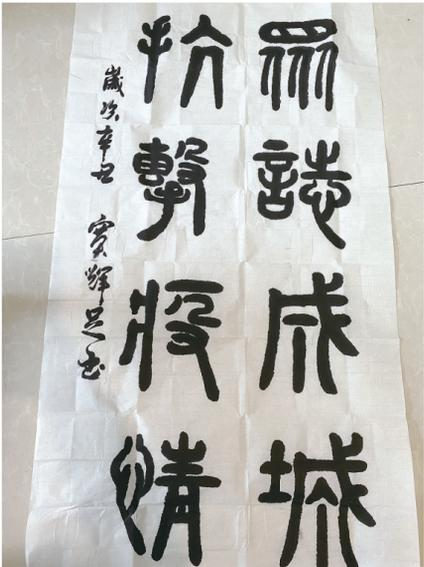 眾誌成城
抗擊疫情
歲次辛丑 輝書